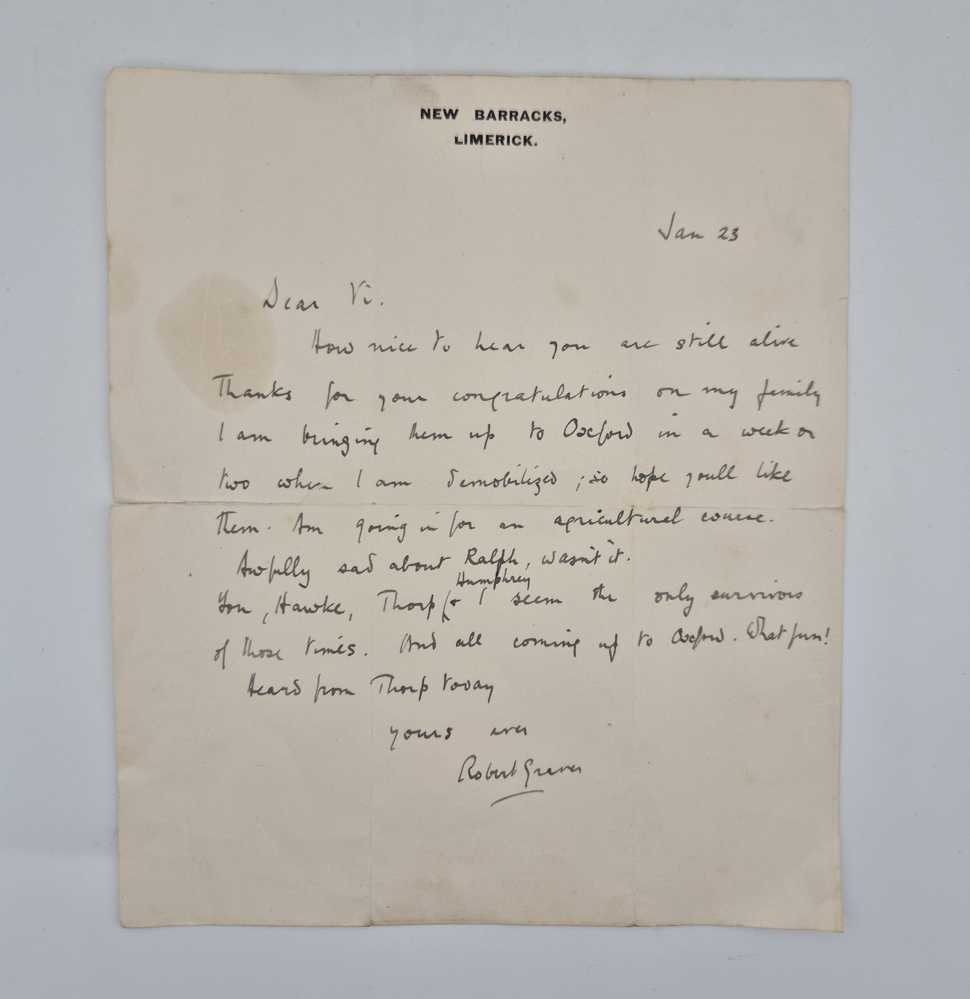 NEW BARRACKS,
LIMERICK.
Jan 23
Dear Vi.
How nice to hear you are still alive
Thanks for your congratulations on my family
I am bringing them up to Oxford in a week or
two when I am demobilized ; so hope youll like
them. Am going in for an agricultural course.
Awfully sad about Ralph, wasn't it.
Humphrey
You, Hawke, Thorp & I seem the only survivors
of those times. And all coming up to Oxford. What fun!
Heard from Thorp today
yours ever
Robert Graves